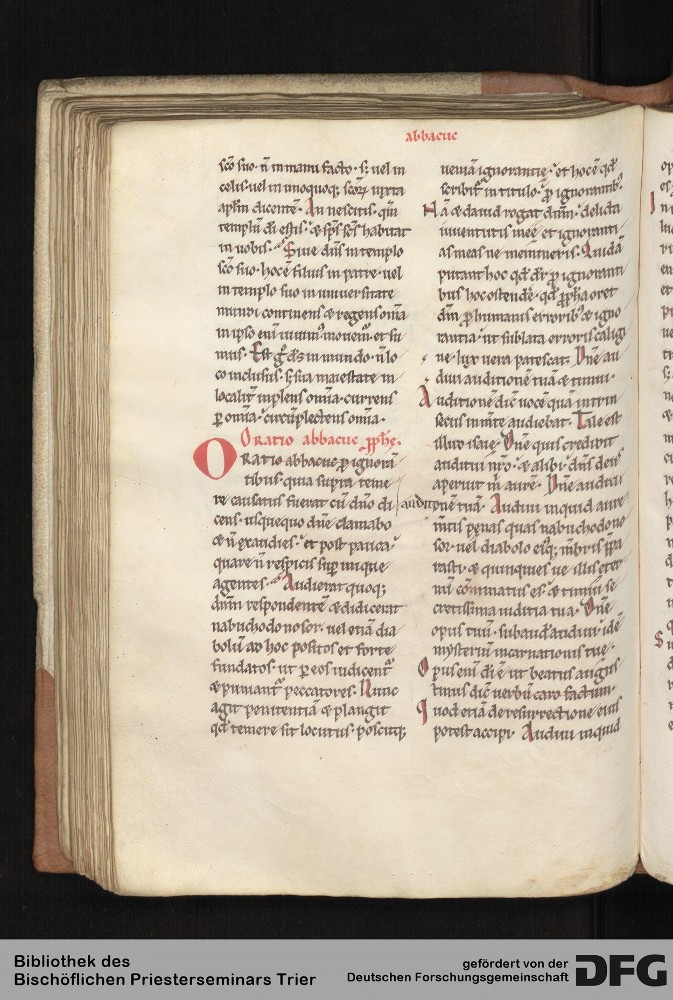 abbacuc
sc̄o suo· n̄ in manu facto· s; uel in
celis· uel in unoquoq; sc̄oꝝ iuxta
apl̄m dicentē· An nescitis· qm̄
templū dī estis· & sp̄s sc̄s habitat
in uobis· Siue dn̄s in templo
sc̄o suo· hoc ē filius in patre· uel
in templo suo in uniuersitate
mundi continens & regens om̄ia
in ipso eni uiuim᷒ mouem̄· et su
mus· Est g̊ ds̄ in mundo· n̄ lo
co inclusus· s; sua maiestate in
localit̄ inplens om̄ia· currens
ꝑ om̄ia· circūplectens om̄ia·
Oratio abbacuc ꝓph̄ę·
ORatio abbacuc ꝓ ignorā
tibus· quia supra teme
re causatus fuerat cū dn̄o di
cens· usquequo dn̄e clamabo
& n̄ exaudies· et post pauca·
quare n̄ respicis sup inique
agentes· Audierat quoq;
dn̄m respondentē & didicerat
nabuchodonosor· uel etiā dia
bolū ad hoc positos et forte
fundatos· ut ꝑ eos iudicent᷑
& puniant᷑ peccatores· Nunc
agit penitentiā & plangit
qd̄ temere sit locutus· poscitq;
ueniā ignorantię· et hoc ē qd̄
scribit᷑ in titulo· ꝓ ignorantib᷒·
Nā & dauid rogat dn̄m· delicta
iuuentutis meę et ignoranti
as meas ne memineris· Quidā
putant hoc qd̄ dr̄ ꝓ ignoranti
bus hoc ostendē· qd̄ ꝓph̄a oret
dm̄ ꝓ humanis erroribus & igno
rantia· ut sublata erroris caligi
ne· lux uera patescat· Dn̄e au
diui auditionē tuā & timui·
Auditionē dic̄ uocē quā intrin
secus in m̄te audiebat· Tale est
illud isaię· Dn̄e quis credidit
auditui nr̄o· & alibi· dn̄s deus
aperuit m̄ aurē· Dn̄e audiui
auditionē tuā· Audiui inquid aure
m̄tis pęnas quas nabuchodono
sor· uel diabolo eiusq; m̄bris p̄pa
rasti· & quinquies ue illis eter
nū cōminatus es· & timui se
cretissima iuditia tua· Dn̄e
opus tuū· subaud̄ audiui· idē
mysteriū incarnationis tuę·
Opus eni dī ē ut beatus augus
tinus dic̄ uerbū caro factum·
Quod etiā de resurrectione eius
potest accipi· Audiui inquid
Bibliothek des
Bischöflichen Priesterseminars Trier
gefördert von der
Deutschen Forschungsgemeinschaft
DFG